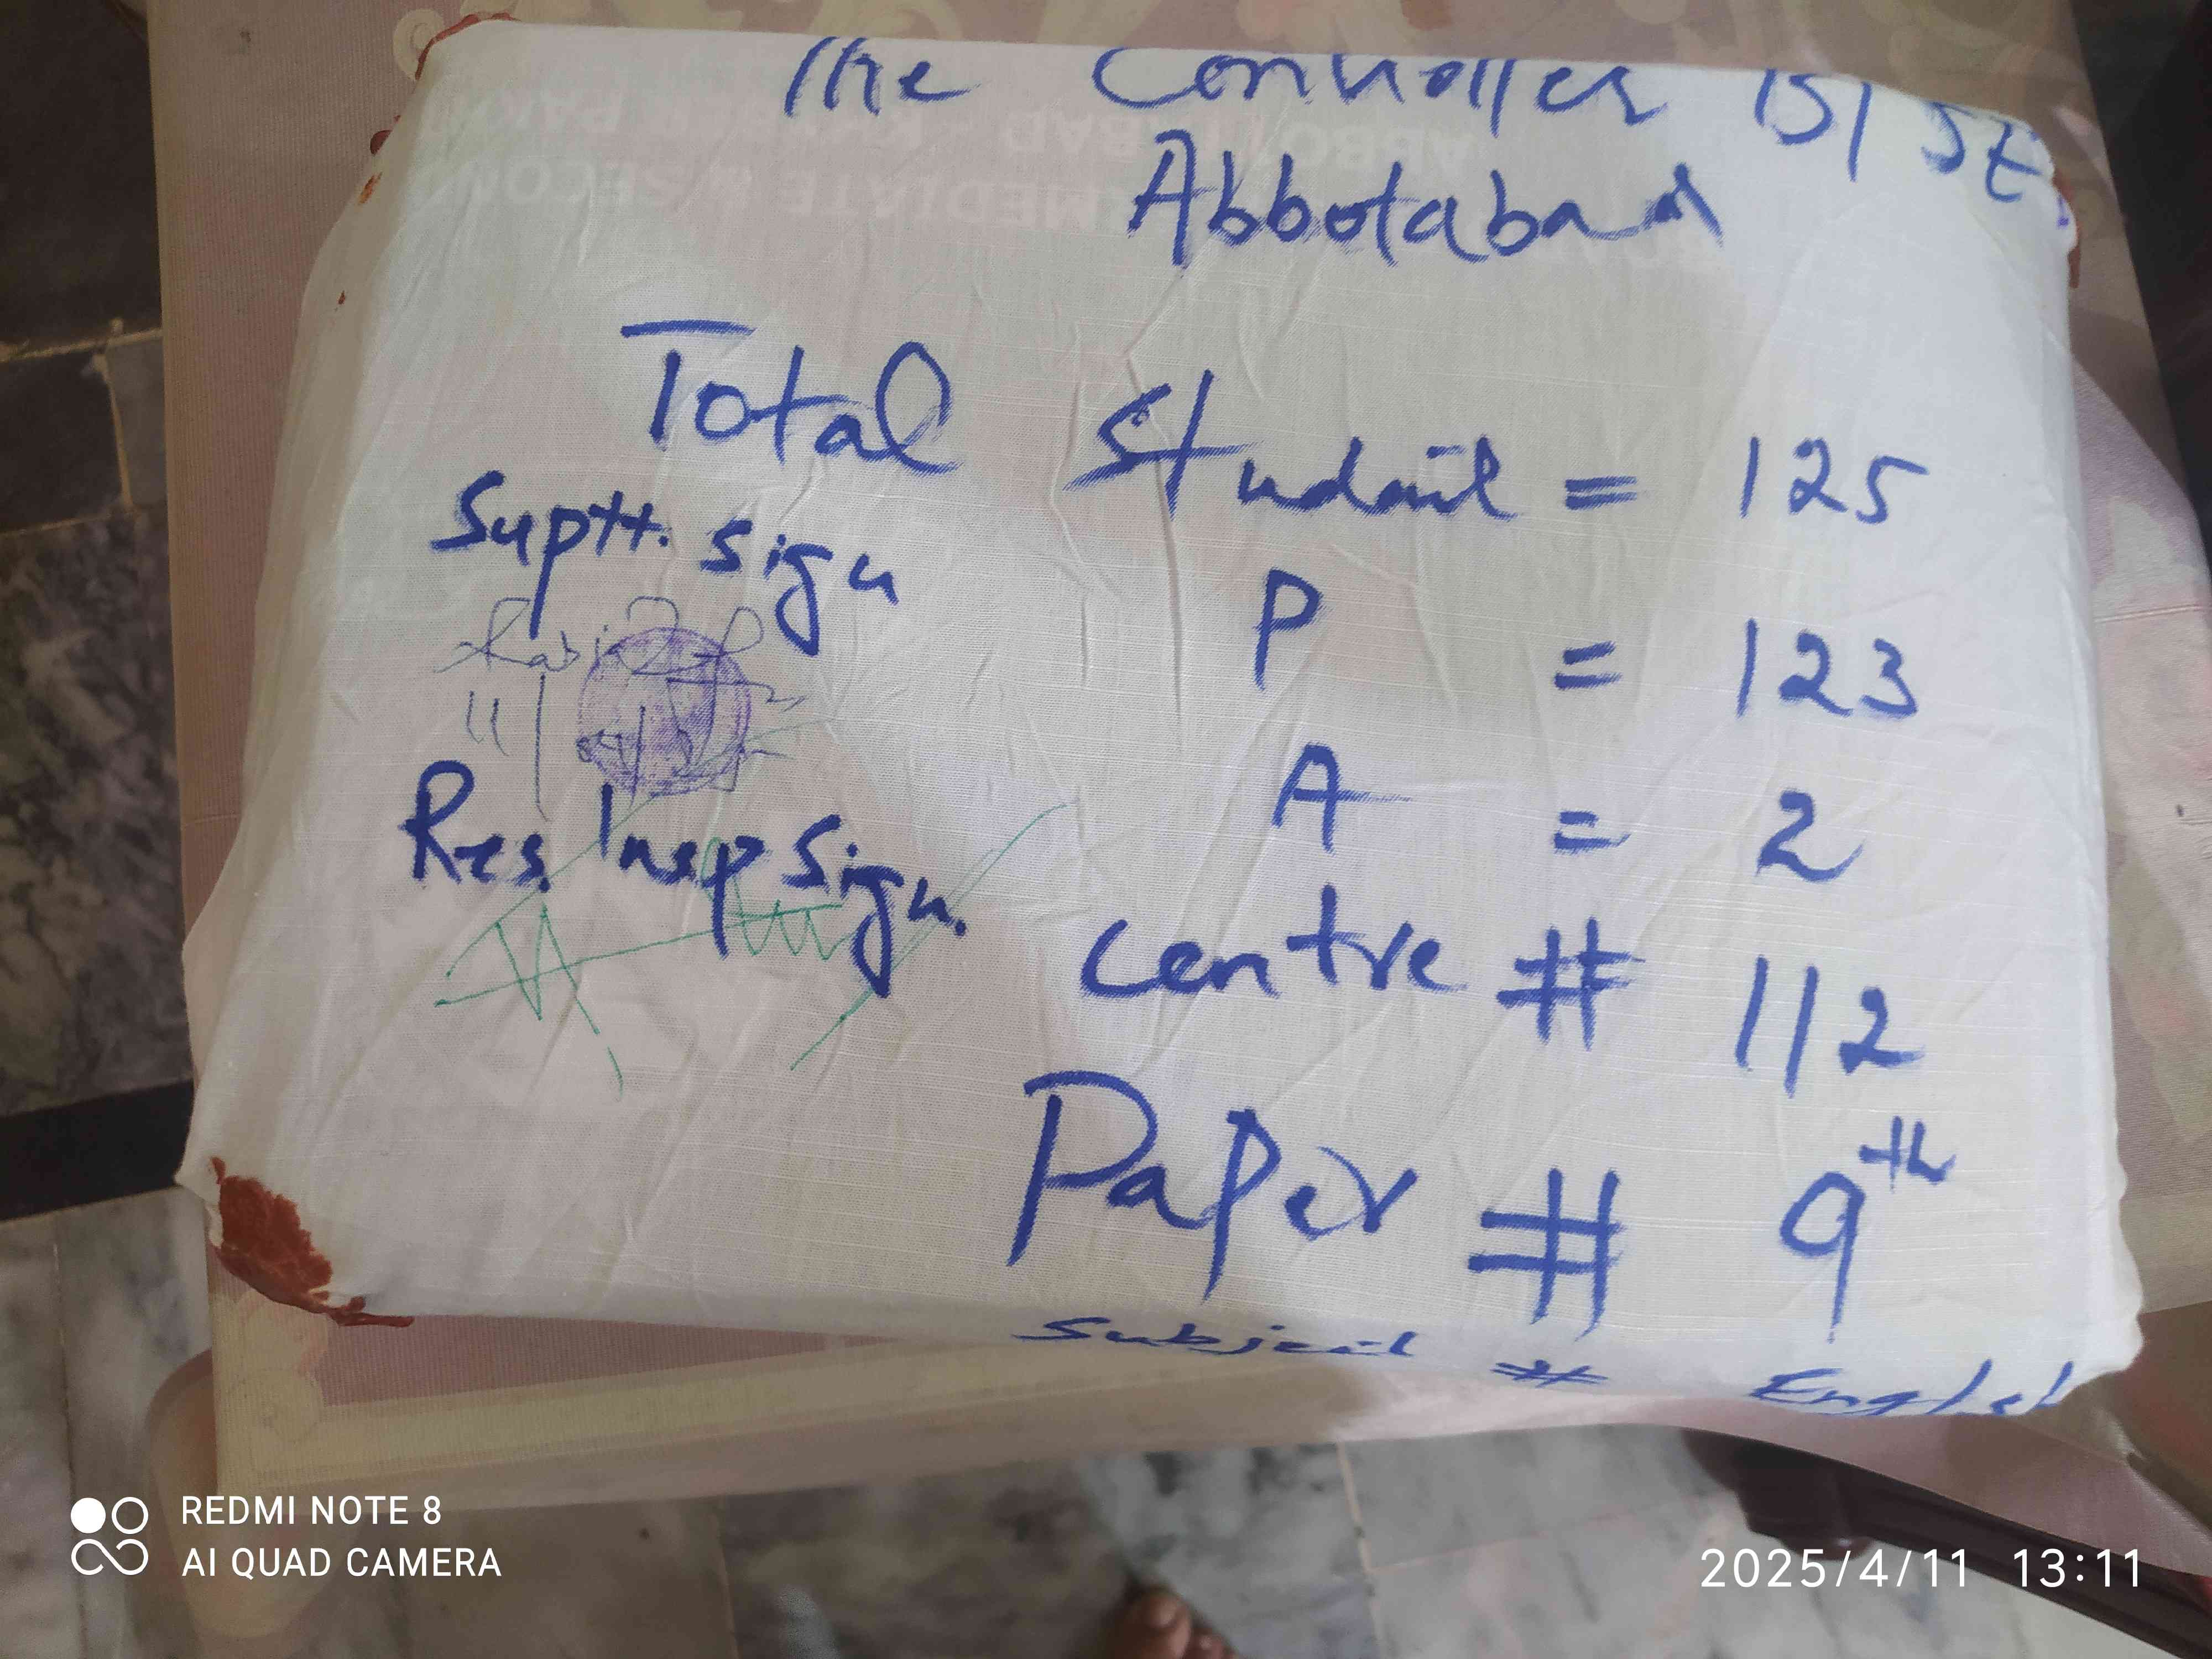 The Controller BISE
Abbotabad
Total Student = 125
Suptt. Sign
P = 123
11
A = 2
Res. Insp Sign.
Centre # 112
Paper # 9th
Subject # English
REDMI NOTE 8
AI QUAD CAMERA
2025/4/11 13:11